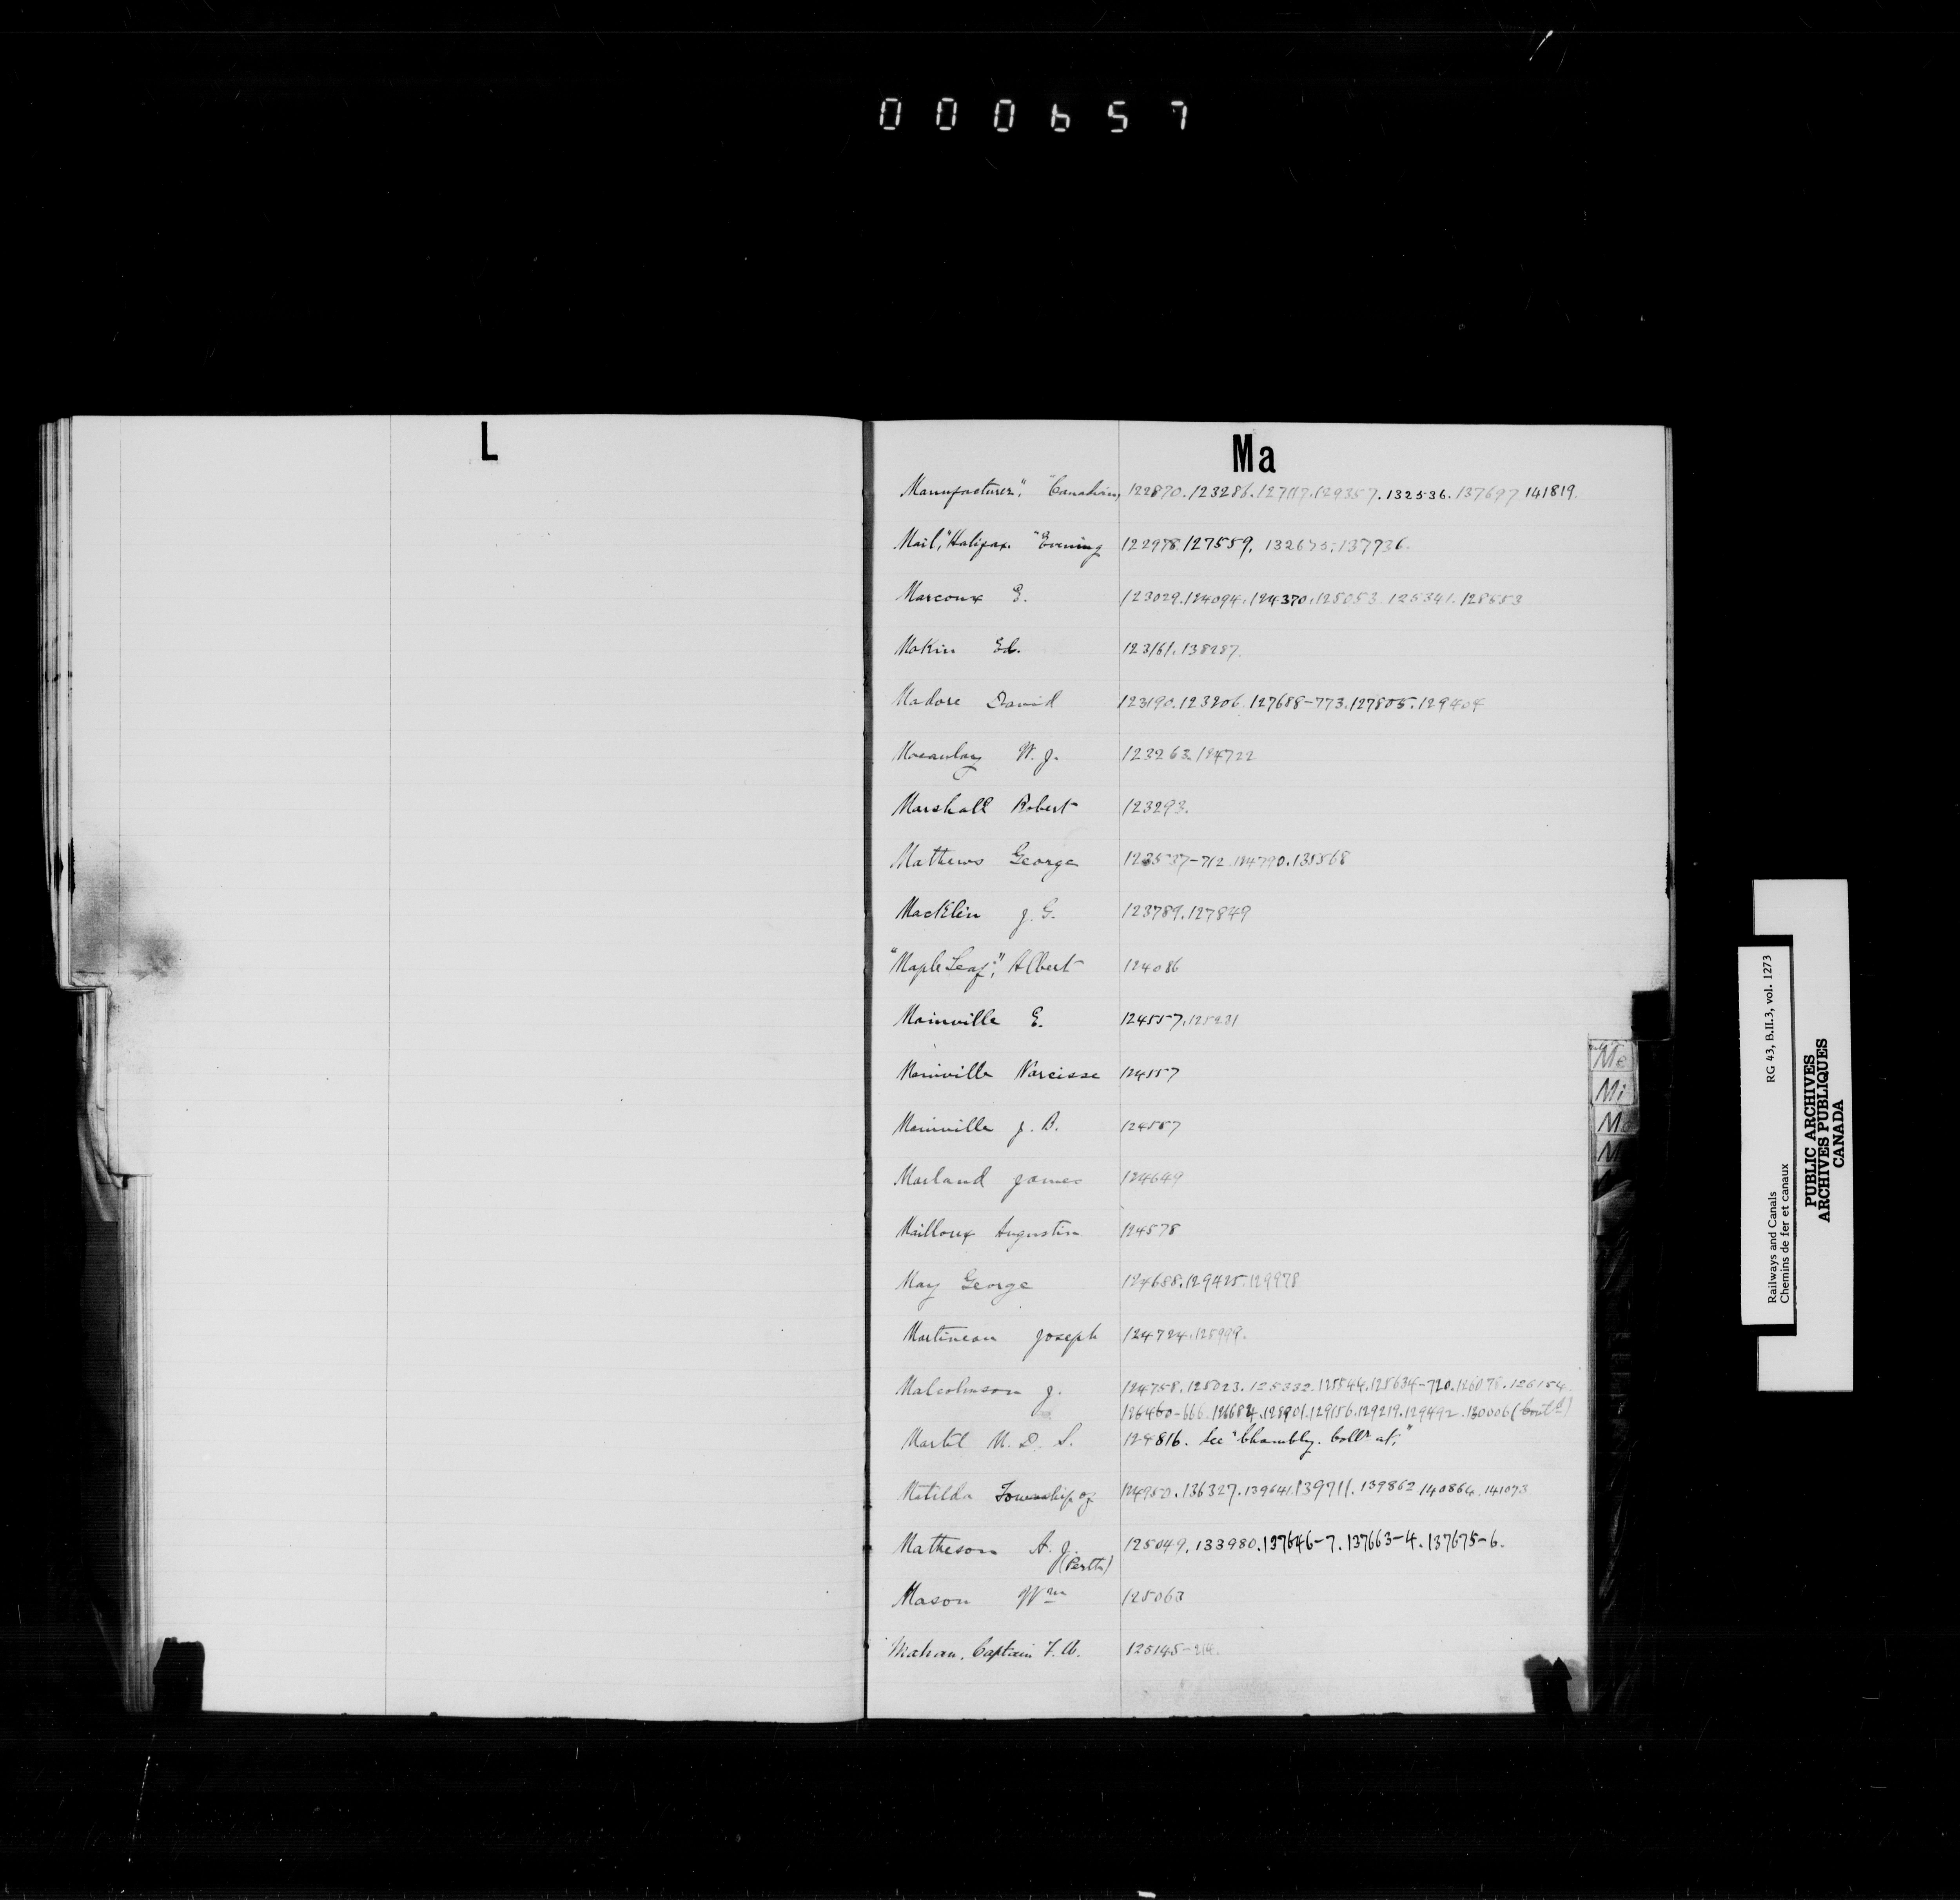 000657
L
Ma
Manufacturer", "Canadian, 122870. 123286. 127117. 129357. 132536. 137697 141819.
Mail," Halifax. "Evening 122978. 127559. 132675. 137736.
Marcoux E. 123029. 124094. 124370. 125053. 125341. 128553
Makin Ed. 123161. 138287.
Madore David 123190. 123206. 127688-773. 127805. 129404
Macaulay W. J. 123263. 124722
Marshall Robert 123293.
Mathews George 123537-712. 124790. 135568
Macklin J. G. 123789. 127849
"Maple Leaf", Albert 124086
Mainville E. 124557. 125231
Mainville Narcisse 124557
Mainville J. B. 124557
Marland James 124649
Mailloux Augustin 124578
May George 124688. 129425. 129978
Martineau Joseph 124724. 125999.
Malcolmson J. 124758. 125023. 125332. 125544. 125634-720. 126078. 126154.
126460-666. 126684. 128901. 129156. 129219. 129492. 130006 (Cont'd)
Martel M. D. S. 124816. See "Chambly. Collr at,"
Matilda Township of 124950. 136327. 139641. 139711. 139862 140864. 141073
Matheson A. J. 125049. 133980. 137646-7. 137663-4. 137675-6.
(Perth)
Mason Wm 125063
Mahan, Captain F. A. 125145-214.
Me
Mi
Railways and Canals RG 43, B.II.3, vol. 1273
Chemins de fer et canaux
PUBLIC ARCHIVES
ARCHIVES PUBLIQUES
CANADA